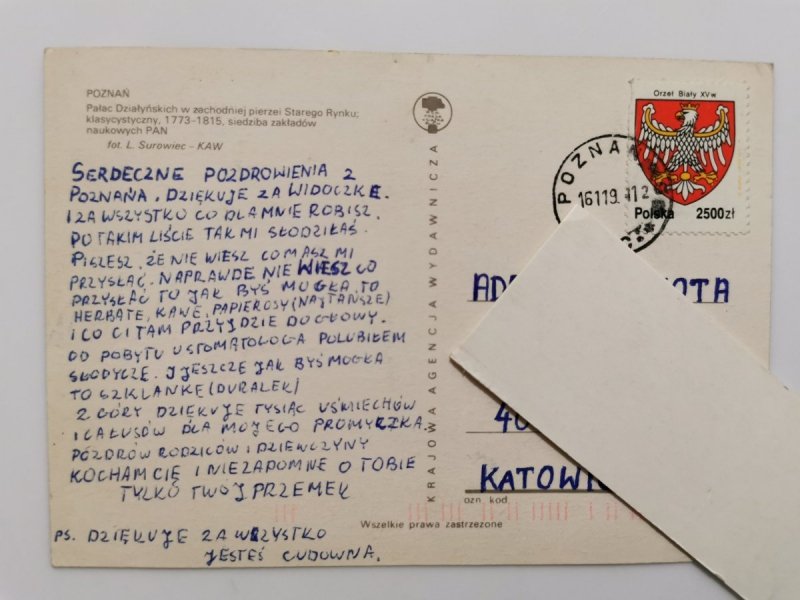 POZNAŃ
Pałac Działyńskich w zachodniej pierzei Starego Rynku;
klasycystyczny, 1773–1815, siedziba zakładów
naukowych PAN
fot. L. Surowiec – KAW
SERDECZNE POZDROWIENIA Z
POZNANIA. DZIĘKUJE ZA WIDOCZKE.
I ZA WSZYSTKO CO DLAMNIE ROBISZ.
PO TAKIM LIŚCIE TAK MI SŁODZIŁAŚ.
PISZESZ, ŻE NIE WIESZ CO MASZ MI
PRZYSŁAĆ. NAPRAWDE NIE WIESZ CO
PRZYSŁAĆ TO JAK BYŚ MOGŁA, TO
HERBATE, KAWE, PAPIEROSY (NAJTAŃSZE)
I CO CI TAM PRZYJDZIE DO GŁOWY.
OD POBYTU U STOMATOLOGA POLUBIŁEM
SŁODYCZE. I JESZCZE JAK BYŚ MOGŁA
TO SZKLANKE (DURALEK)
Z GÓRY DZIĘKUJE TYSIĄC UŚMIECHÓW
I CAŁUSÓW DLA MOJEGO PROMYCZKA.
POZDRÓW RODZICÓW I DZIEWCZYNY
KOCHAM CIĘ I NIEZAPOMNE O TOBIE
TYLKO TWOJ PRZEMEK
PS. DZIĘKUJE ZA WSZYSTKO
JESTEŚ CUDOWNA.
KRAJOWA AGENCJA WYDAWNICZA
Orzeł Biały XV w.
Polska 2500 zł
POZNAŃ
KATOWIC
ozn. kod
Wszelkie prawa zastrzeżone